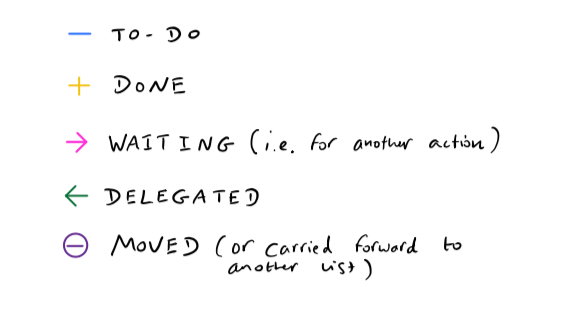 — TO-DO
+ DONE
→ WAITING (i.e. for another action)
← DELEGATED
⊖ MOVED (or carried forward to
another list)